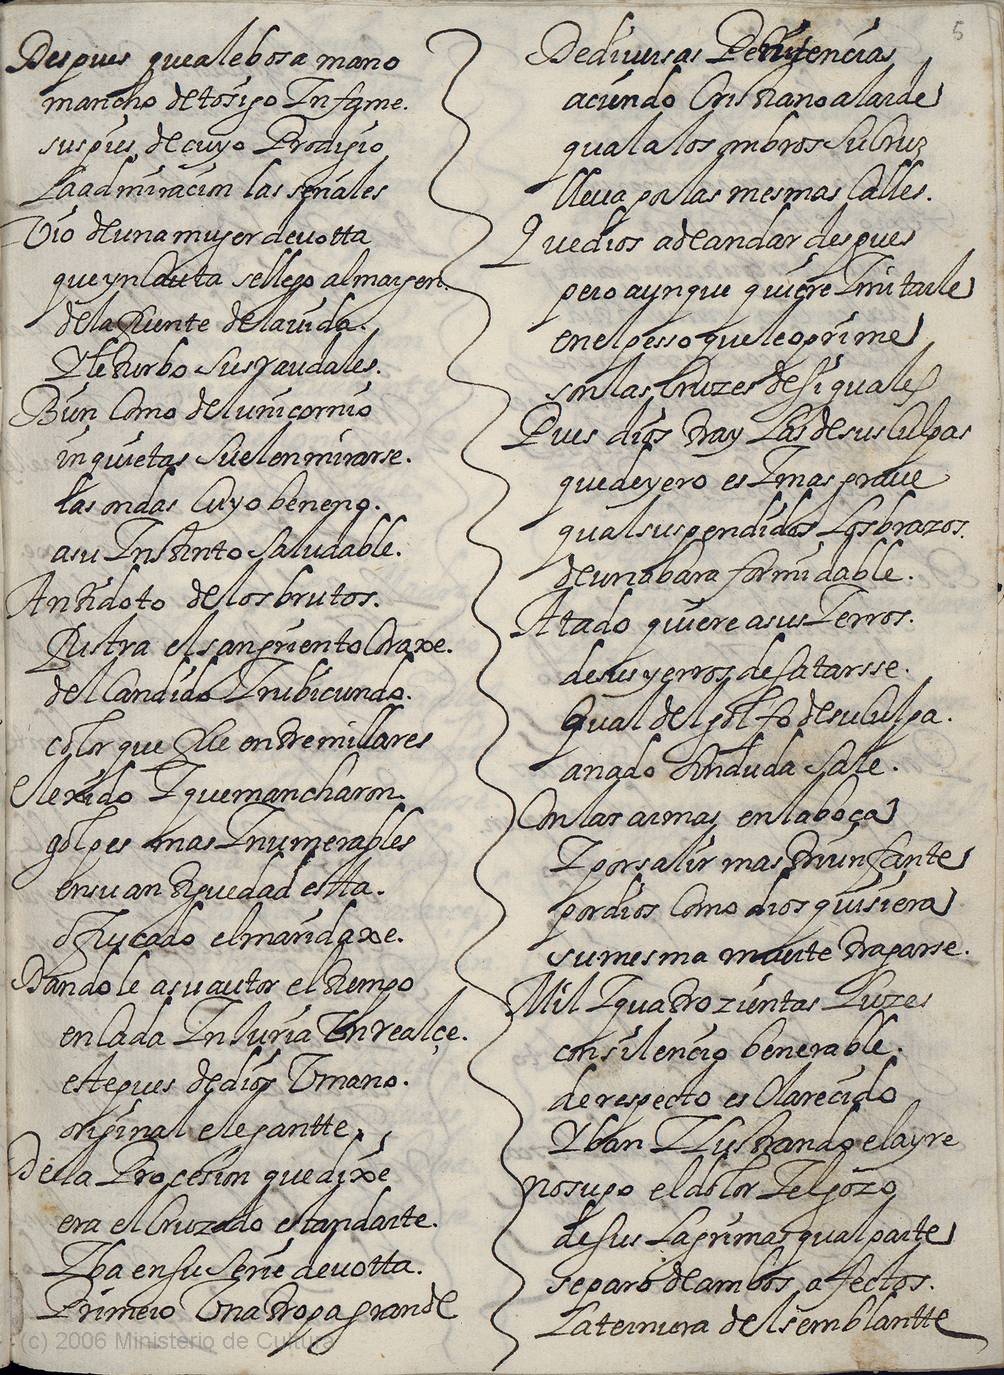 5
Despues quealebosa mano
mancho detosigo Infame.
suspies decuyo Prodigio
Laadmiracion las señales
Vio deuna muger deuotta
queyncauta sellego almargen
dela fuente delauida.
Yleturbo susraudales.
Bien Como delunicornio
inquietas Suelenmirarse.
las ondas Cuyo beneno.
asu Instinto Saludable.
Antidoto delosbrutos.
Ilustra elsangriento Coraxe.
del Candido Irubicundo.
color que entremillares
Elexido Iquemancharon
golpes mas Inumerables
ensu antiguedad estta.
ofuscado elmaridaxe.
Dandole asuautor eltiempo
encada Iniuria Unrealçe.
estepues dedios Umano.
original elegantte,
Dela Procesion quedixe
era elCruzado estandarte.
Iba ensu Serie deuotta.
Primero Una tropa grande
Dediuersas Penitencias
aciendo Cristiano alarde
qualalos ombros SuCruz
lleua porlas mesmas Calles.
Quedios adeandar despues
pero aunque quiere Imitarle
enelpesso queleoprime
sonlas Cruzes desiguales
Pues dios tray Las desusculpas
quedeyero es Imas graue
qualsuspendidos Losbrazos.
deunabara formidable.
Atado quiere asus Ierros.
desusyerros desatarsse.
Qual delgolfo desuculpa.
anado sinduda sale.
Conlasarmas enlaboca
Iporsalir mas triunfante
pordios Como dios quisiera
sumesma muerte tragarse.
Mil Iquatrozientas Luzes
consilencio benerable.
derespecto esclarecido
Yban Ilustrando elayre
nosupo eldolor Ielgozo
desus Lagrimas qualparte
separo deambos afectos.
Laternura delsemblantte
(c) 2006 Ministerio de Cultura